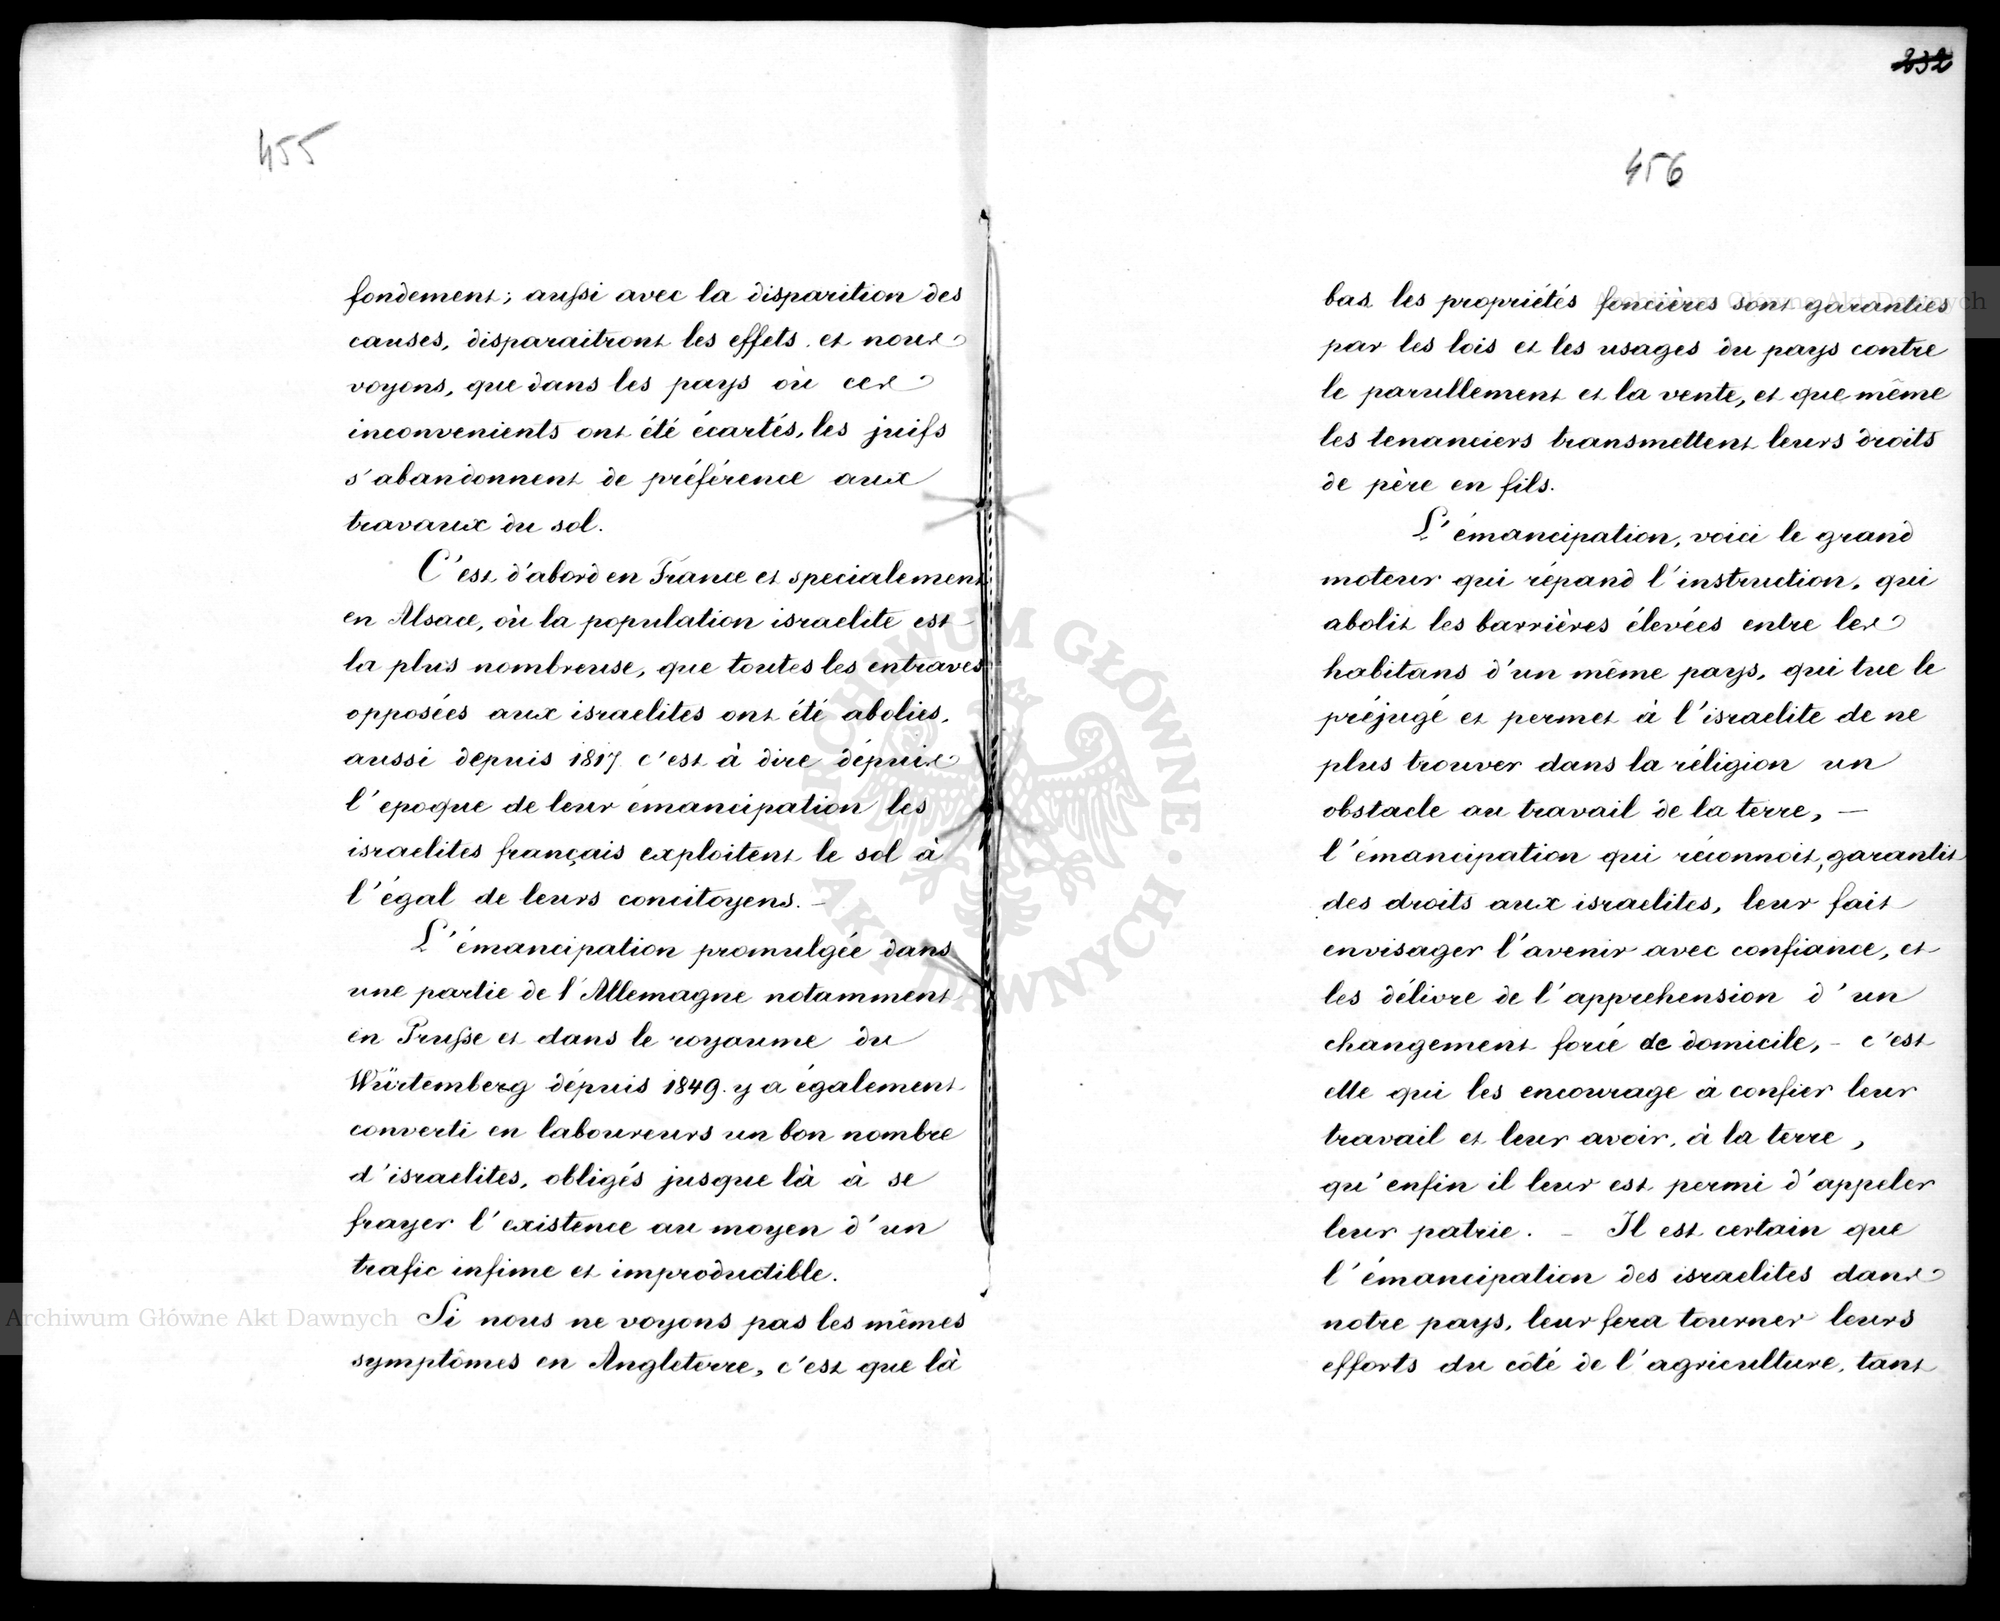 455
fondement; aussi avec la disparition des
causes, disparaitront les effets. et nous
voyons, que dans les pays où ces
inconvenients ont été écartés, les juifs
s'abandonnent de préférence aux
travaux du sol.
C'est d'abord en France et specialement
en Alsace, où la population israelite est
la plus nombreuse, que toutes les entraves
opposées aux israelites ont été abolies,
aussi depuis 1817 c'est à dire dépuis
l'epoque de leur émancipation les
israelites français exploitent le sol à
l'égal de leurs concitoyens. —
L'émancipation promulgée dans
une partie de l'Allemagne notamment
en Prusse et dans le royaume du
Würtemberg dépuis 1849. y a également
converti en laboureurs un bon nombre
d'israelites, obligés jusque là à se
frayer l'existence au moyen d'un
trafic infime et improductible.
Si nous ne voyons pas les mêmes
symptômes en Angleterre, c'est que là
232
456
bas les propriétés foncières sont garanties
par les lois et les usages du pays contre
le parullement et la vente, et que même
les tenanciers transmettent leurs droits
de père en fils.
L'émancipation, voici le grand
moteur qui répand l'instruction, qui
abolit les barrières élevées entre les
habitans d'un même pays, qui tue le
préjugé et permet à l'israelite de ne
plus trouver dans la réligion un
obstacle au travail de la terre, —
l'émancipation qui réconnoit, garantit
des droits aux israelites, leur fait
envisager l'avenir avec confiance, et
les délivre de l'apprehension d'un
changement forcé de domicile, – c'est
elle qui les encourage à confier leur
travail et leur avoir, à la terre,
qu'enfin il leur est permi d'appeler
leur patrie. – Il est certain que
l'émancipation des israelites dans
notre pays, leur fera tourner leurs
efforts du côté de l'agriculture, tant
Archiwum Główne Akt Dawnych
Archiwum Główne Akt Dawnych
ARCHIWUM GŁÓWNE • AKT DAWNYCH •